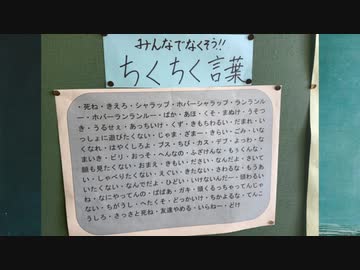 みんなでなくそう!!
ちくちく言葉
・死ね・きえろ・シャラップ・ホバーシャラップ・ランランルー
ー・ホバーランランルー・ばか・あほ・くそ・まぬけ・うそつ
き・うるせぇ・あっちいけ・くず・きもちわるい・だまれ・い
っしょに遊びたくない・じゃま・ざまー・きらい・ごみ・いな
くなれ・はやくしろよ・ブス・ちび・カス・デブ・よっわ・な
まいき・ビリ・おっそ・へんなの・ふざけんな・もぅくんな・
顔も見たくない・おまえ・きもい・ださい・なんだよ・さいて
い・しゃべりたくない・えぐい・きたない・さわるな・もうあ
いたくない・なんでだよ・ひどい・いけないんだー・頭わるい
ね・なにやってんの・ばばあ・ガキ・頭くるっちゃってんじゃ
ない・ちがうし・へたくそ・どっかいけ・ちかよるな・てんこ
うしろ・さっさと死ね・友達やめる・いらねー・どけ